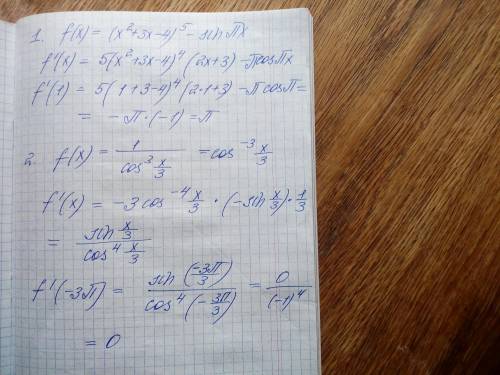 1. f(x) = (x²+3x-4)⁵ - sin πx
f'(x) = 5(x²+3x-4)⁴ (2x+3) - πcosπx
f'(1) = 5(1+3-4)⁴(2·1+3) - πcosπ=
= -π·(-1) = π
2. f(x) = 1/cos³ x/3 = cos⁻³ x/3
f'(x) = -3 cos⁻⁴ x/3 · (-sin x/3) · 1/3
= sin x/3 / cos⁴ x/3
f'(-3π) = sin(-3π/3) / cos⁴(-3π/3) = 0/(-1)⁴
= 0